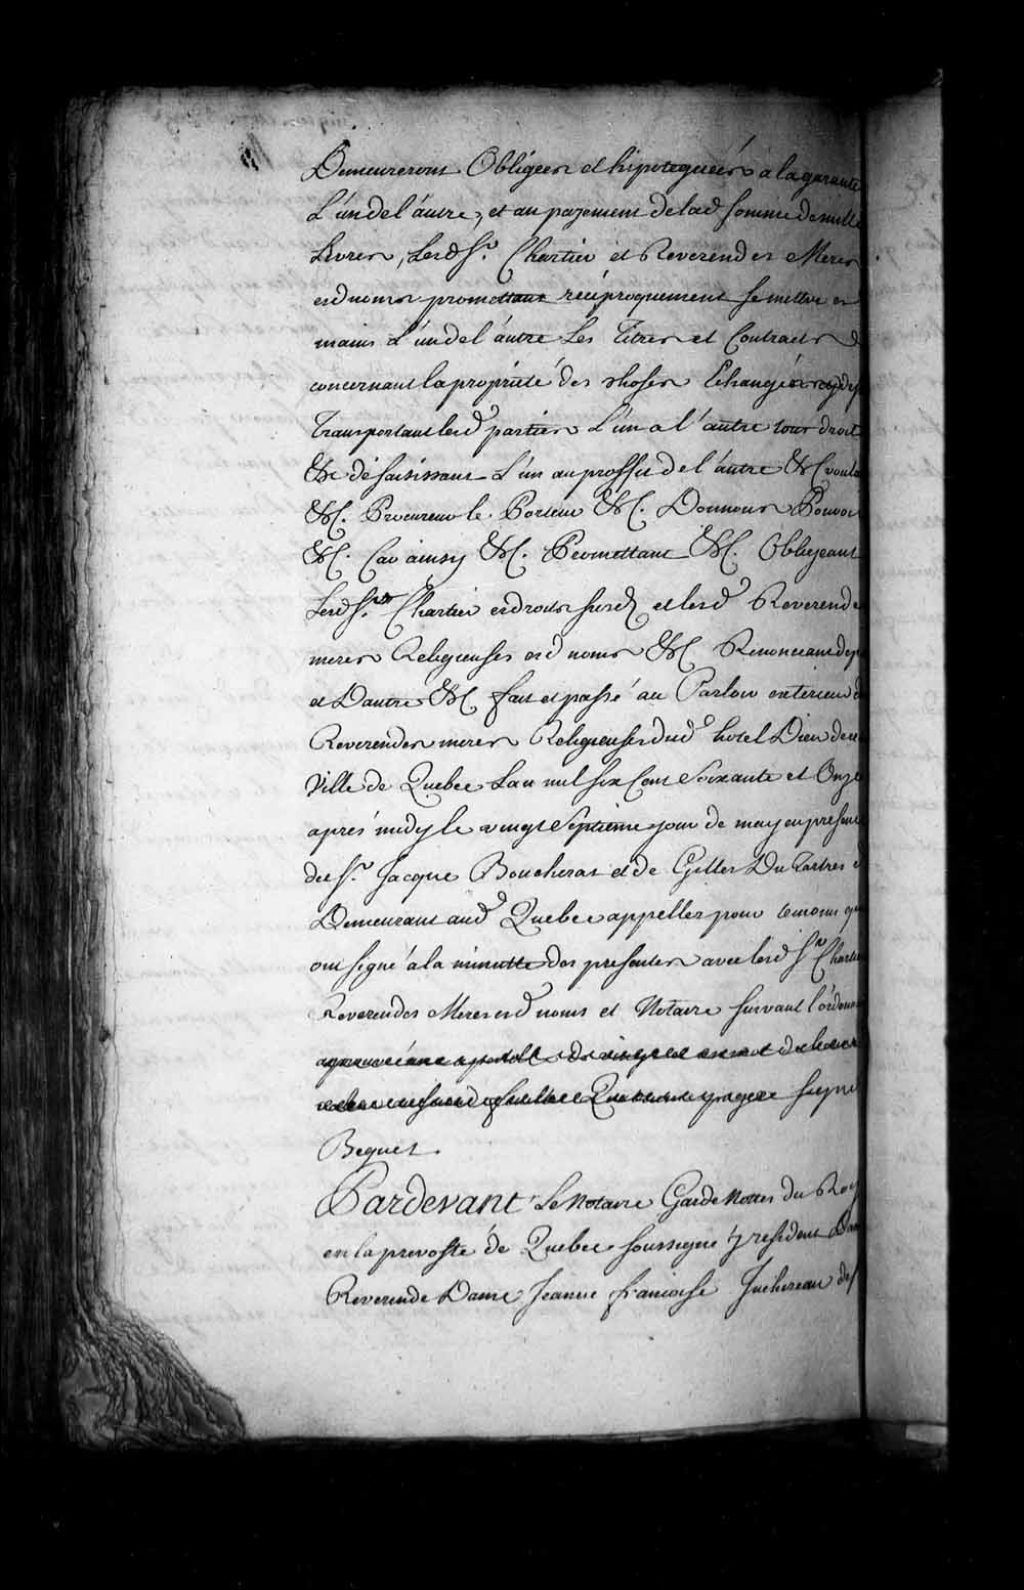 Demeureront Obligéés et hipotequéés a la garantie
L'un de l'autre, et au payement de lad somme de mille
Livres, Lesd Sr. Chartier et Reverendes Meres
esd noms promettans réciproquement se mettre es
mains L'un de l'autre Les Titres et Contracts
concernant la propriété des choses Echangéés
Transportant lesd parties L'un a l'autre tous droits
&c désaisissant L'un au proffit de l'autre &c voulant
&c. Procureur le Porteur &c. Donnons Pouvoir
&c. Car ainsy &c. Promettant &c. Obligeant
Lesd Sr. Chartier esdroits susd et lesd Reverendes
meres Religieuses esd noms &c Renonceant
et Dautre &c fait et passé au Parloir exterieur
Reverendes meres Religieuses dud hotel Dieu de
Ville de Quebec Lan mil six Cent Soixante et Onze
aprés midy le vingt Septieme jour de may en presence
du Sr. Jacque Boucheras et de Gilles Du Tartres
Demeurant aud Quebec appellez pour temoins qui
ont signé a la minutte des presentes avec lesd Sr Chartier
Reverendes Meres esd noms et Notaire suivant l'ordonn
signé
Bequet.
Pardevant Le Notaire Garde Nottes du Roy
en la prevosté de Quebec soussigné y resident
Reverende Dame Jeanne francoise Juchereau de St